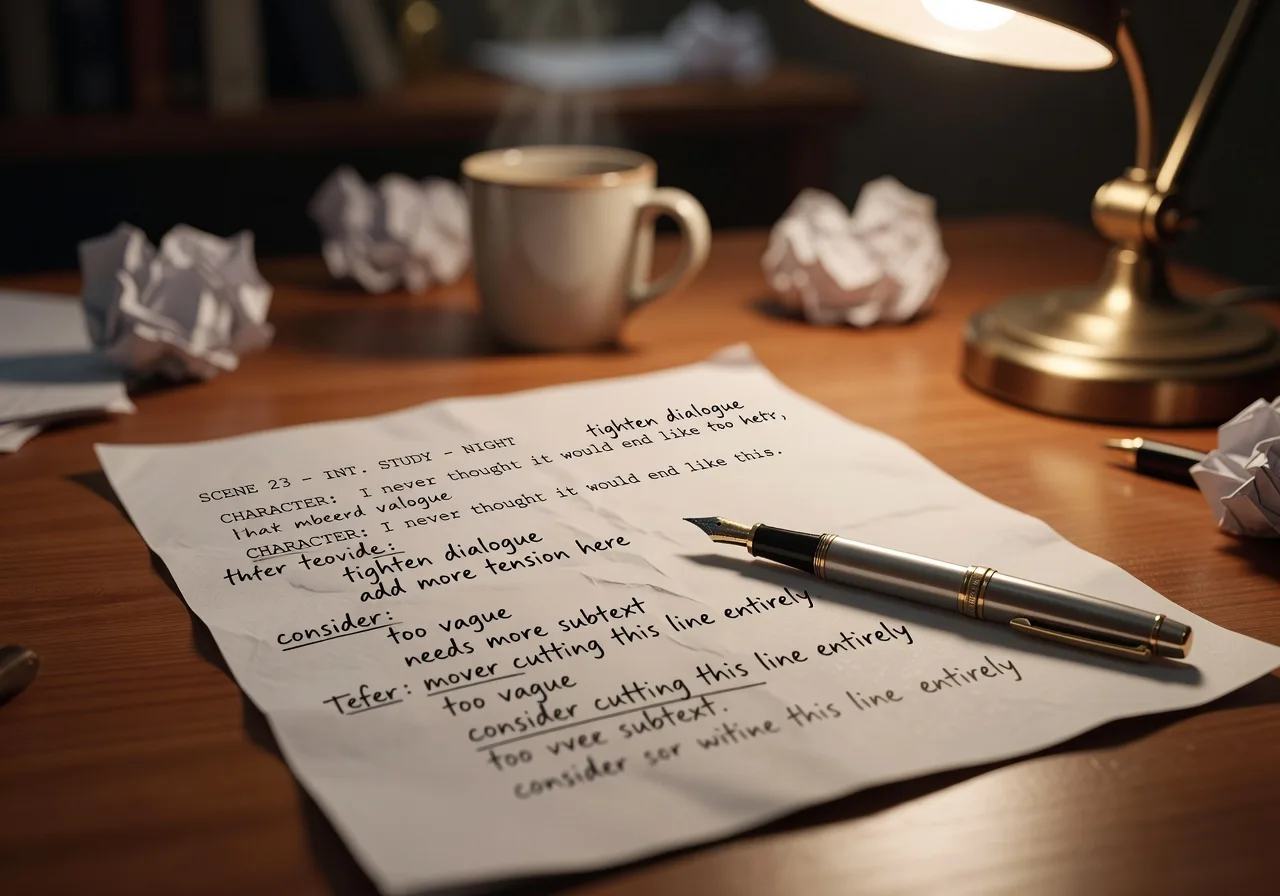 tighten dialogue
SCENE 23 - INT. STUDY - NIGHT
CHARACTER: I never thought it would end like too hetr,
lhat mbeerd valogue
CHARACTER: I never thought it would end like this.
thfer teovide:
tighten dialogue
add more tension here
consider:
too vague
needs more subtext
Tefer: mover cutting this line entirely
too vague
consider cutting this line entirely
too vvee subtext.
consider sor witine this line entirely